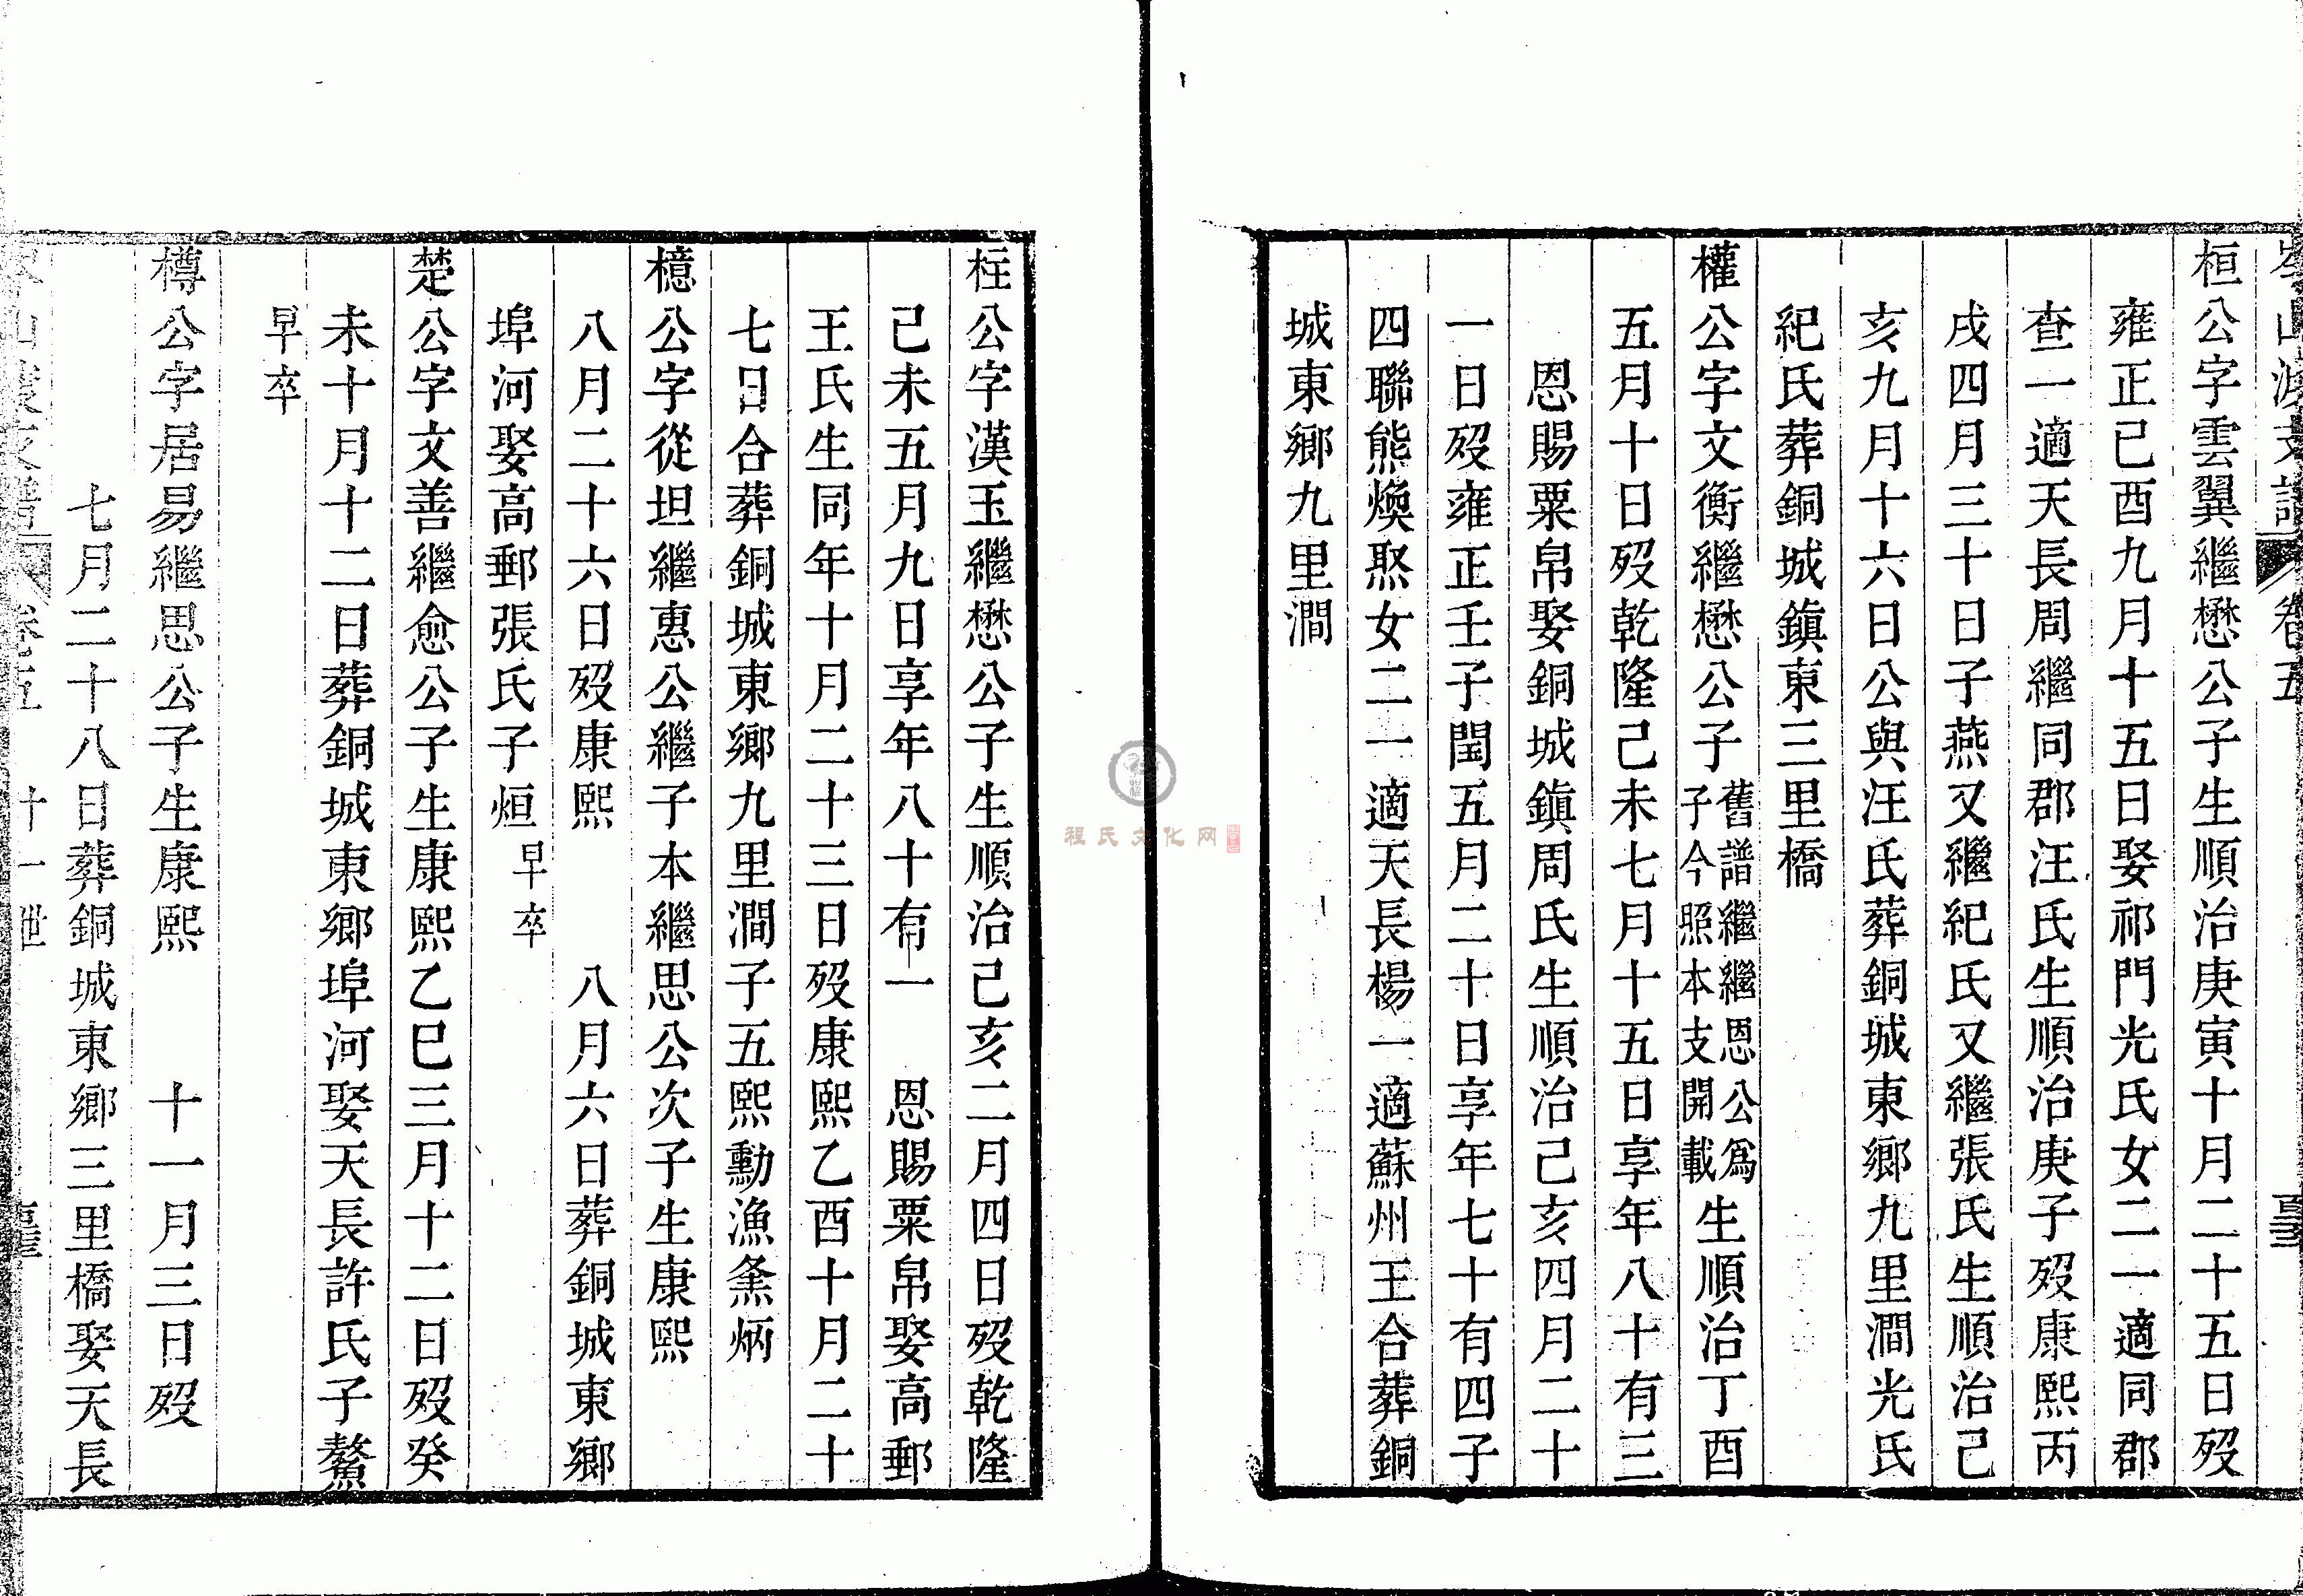 桓公字雲翼繼懋公子生順治庚寅十月二十五日歿
雍正己酉九月十五日娶祁門光氏女二一適同郡
查一適天長周繼同郡汪氏生順治庚子歿康熙丙
戌四月三十日子燕又繼紀氏又繼張氏生順治己
亥九月十六日公與汪氏葬銅城東鄉九里澗光氏
紀氏葬銅城鎮東三里橋
權公字文衡繼懋公子舊譜繼繼恩公為子今照本支開載生順治丁酉
五月十日歿乾隆己未七月十五日享年八十有三
恩賜粟帛娶銅城鎮周氏生順治己亥四月二十
一日歿雍正壬子閏五月二十日享年七十有四子
四聯熊煥焣女二一適天長楊一適蘇州王合葬銅
城東鄉九里澗
柱公字漢玉繼懋公子生順治己亥二月四日歿乾隆
己未五月九日享年八十有一 恩賜粟帛娶高郵
王氏生同年十月二十三日歿康熙乙酉十月二十
七日合葬銅城東鄉九里澗子五熙勳漁㷅炳
檍公字從坦繼惠公繼子本繼思公次子生康熙
八月二十六日歿康熙 八月六日葬銅城東鄉
埠河娶高郵張氏子烜早卒
楚公字文善繼愈公子生康熙乙巳三月十二日歿癸
未十月十二日葬銅城東鄉埠河娶天長許氏子鰲
早卒
樽公字居易繼思公子生康熙 十一月三日歿
七月二十八日葬銅城東鄉三里橋娶天長
卷五 十一世
程氏文化网